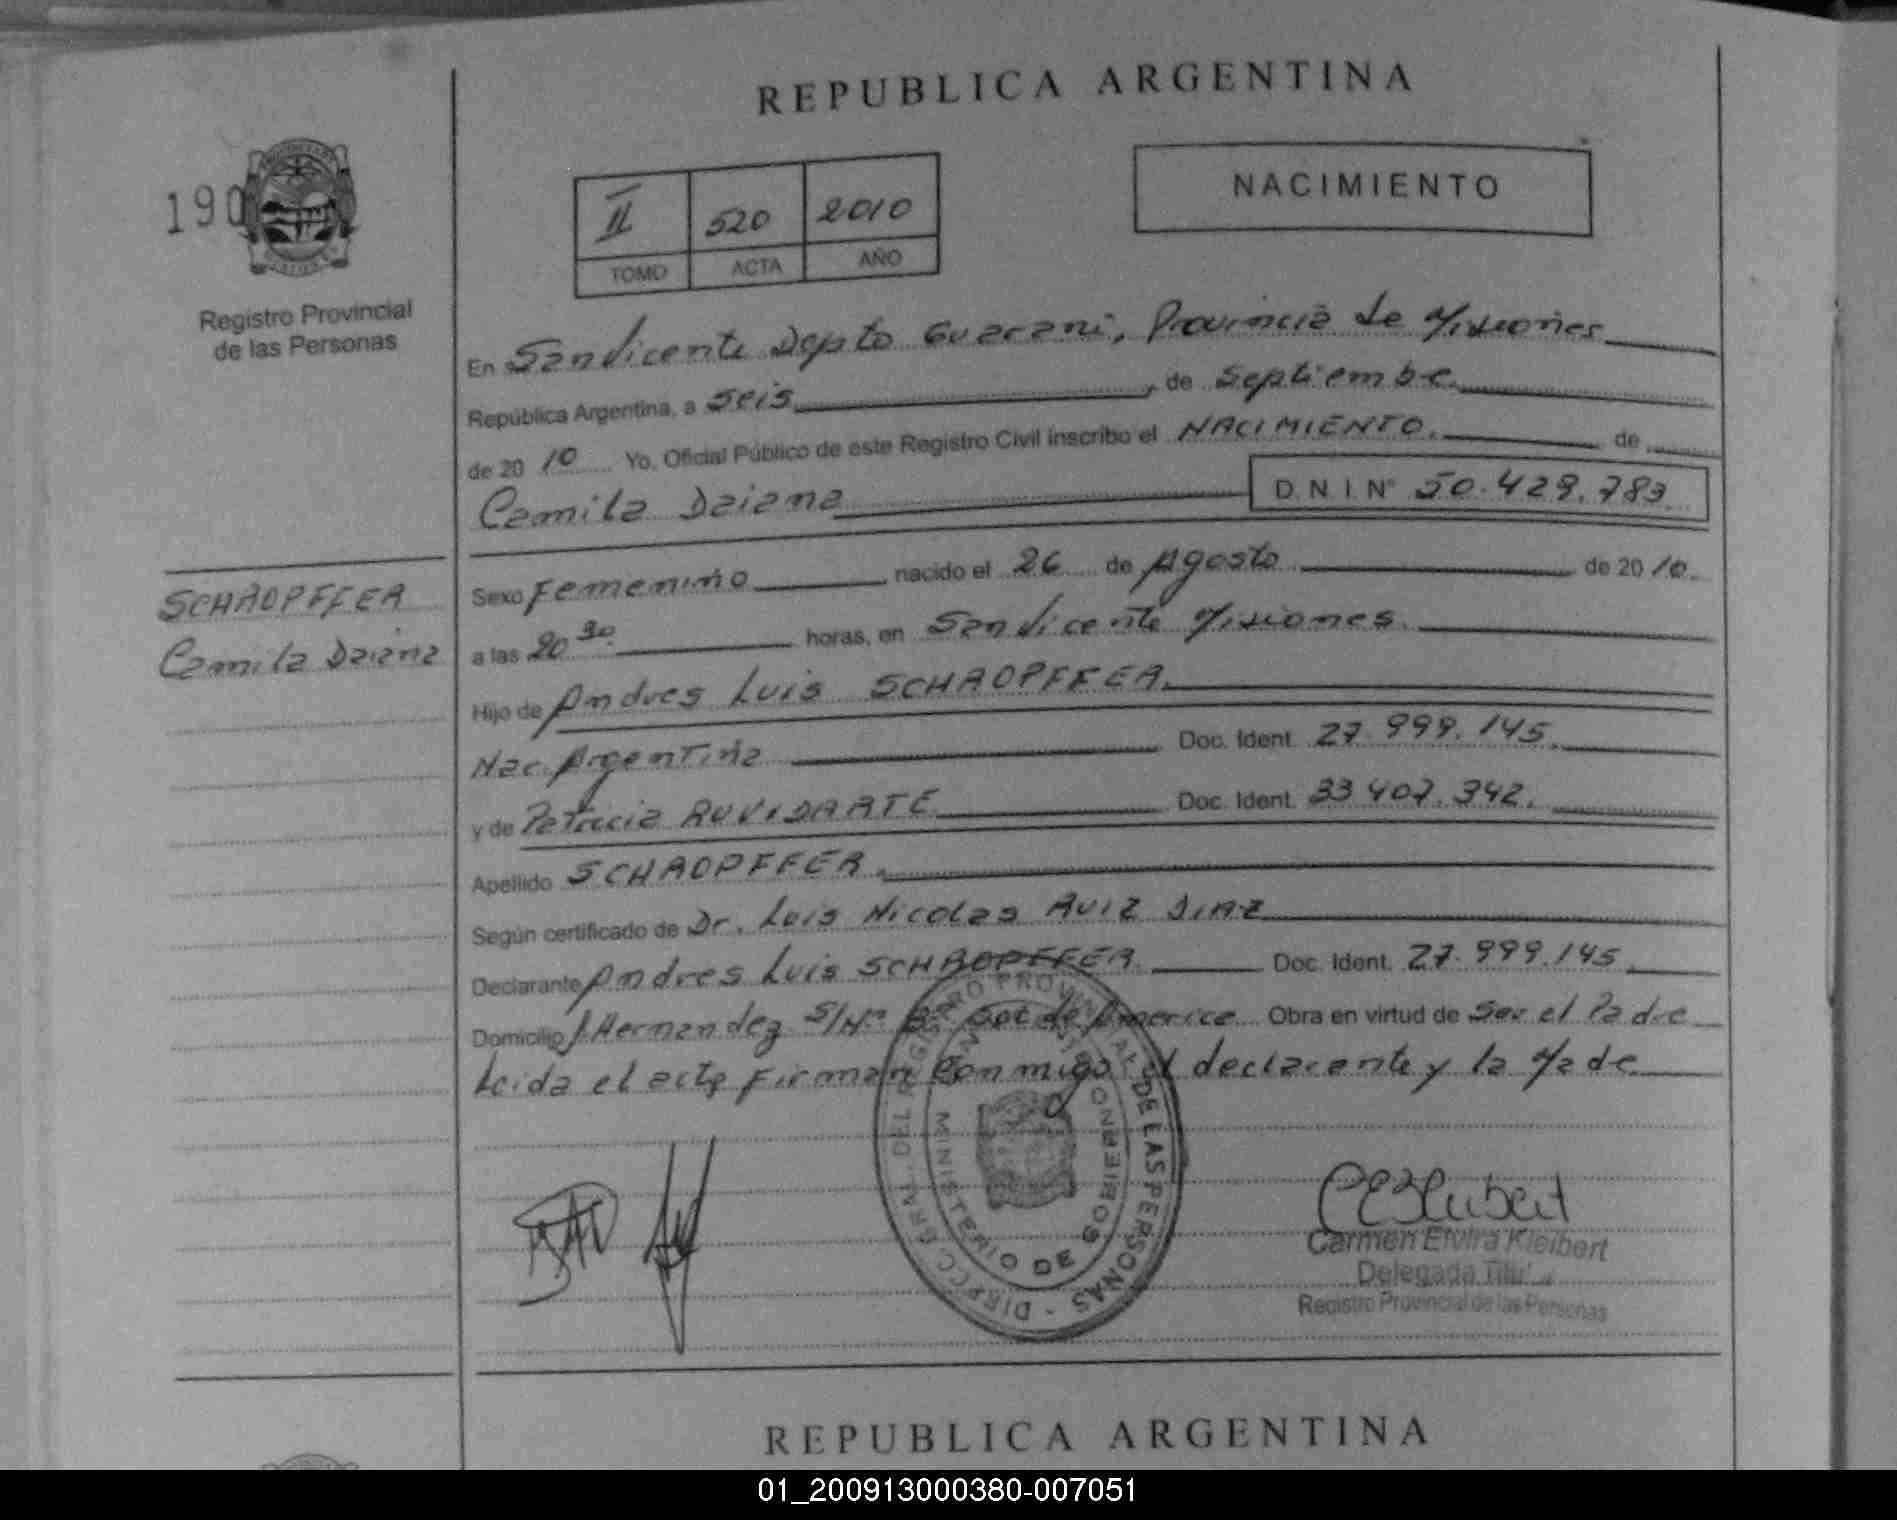 REPUBLICA ARGENTINA
NACIMIENTO
190
II 520 2010
TOMO ACTA AÑO
Registro Provincial
de las Personas
En San Vicente Depto Guarani, Provincia de Misiones
República Argentina, a seis, de Septiembre
de 2010 Yo, Oficial Público de este Registro Civil inscribo el NACIMIENTO. de
Camila Daiana D.N.I. Nº 50.429.783
SCHROPFFER
Camila Daiana
Sexo Femenino nacido el 26 de Agosto de 2010.
a las 20 30 horas, en San Vicente Misiones.
Hijo de Andres Luis SCHROPFFER.
Nac. Argentina Doc. Ident. 27.999.145.
y de Patricia RUVIDARTE Doc. Ident. 33 407.342.
Apellido SCHROPFFER.
Según certificado de Dr. Luis Nicolas RUIZ DIAZ
Declarante Andres Luis SCHROPFFER. Doc. Ident. 27.999.145
Domicilio J. Hernandez S/Nº Bº Sol de America Obra en virtud de Ser el Padre
Leida el acta Firman Conmigo el declarante y la Made
DIRECC. GRAL. DEL REGISTRO PROVINCIAL DE LAS PERSONAS -
MINISTERIO DE GOBIERNO
CEKleibert
Carmen Elvira Kleibert
Delegada Titular
Registro Provincial de las Personas
REPUBLICA ARGENTINA
01_200913000380-007051